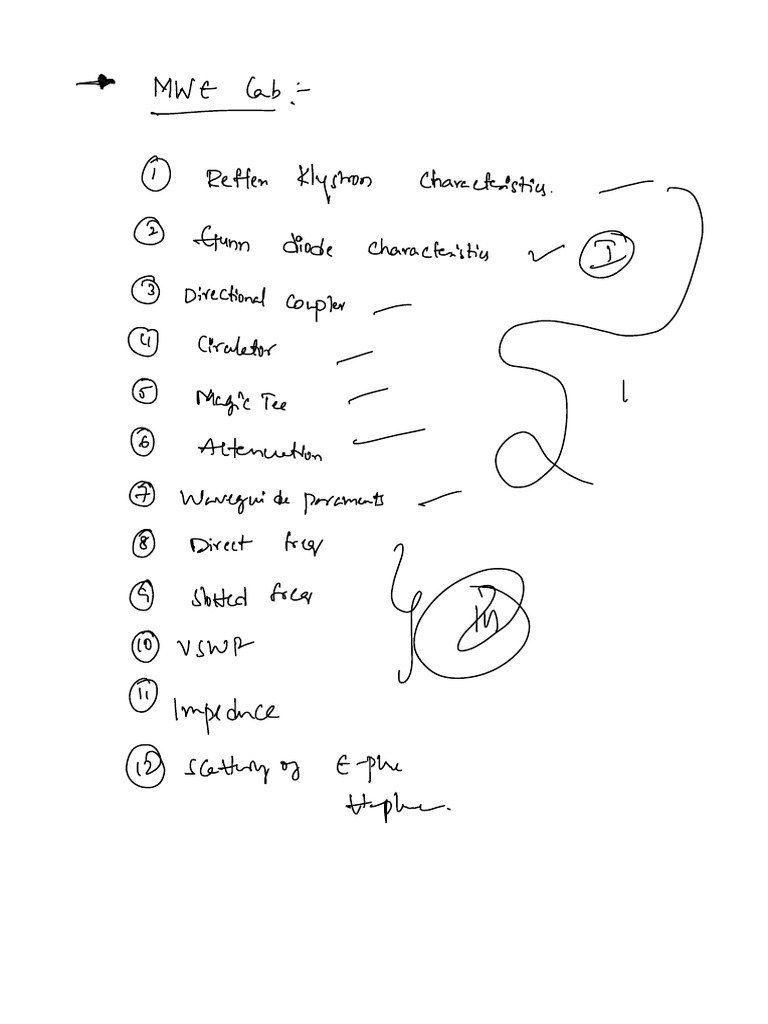 MWE Lab :-
① Reflex Klystron Characteristics.
② Gunn diode characteristics I
③ Directional Coupler
④ Circulator
⑤ Magic Tee
⑥ Attenuation
⑦ Waveguide paraments
⑧ Direct freq
⑨ Slotted freq
⑩ VSWR
⑪ Impedence
⑫ Scattering of E-plane
H-plane.